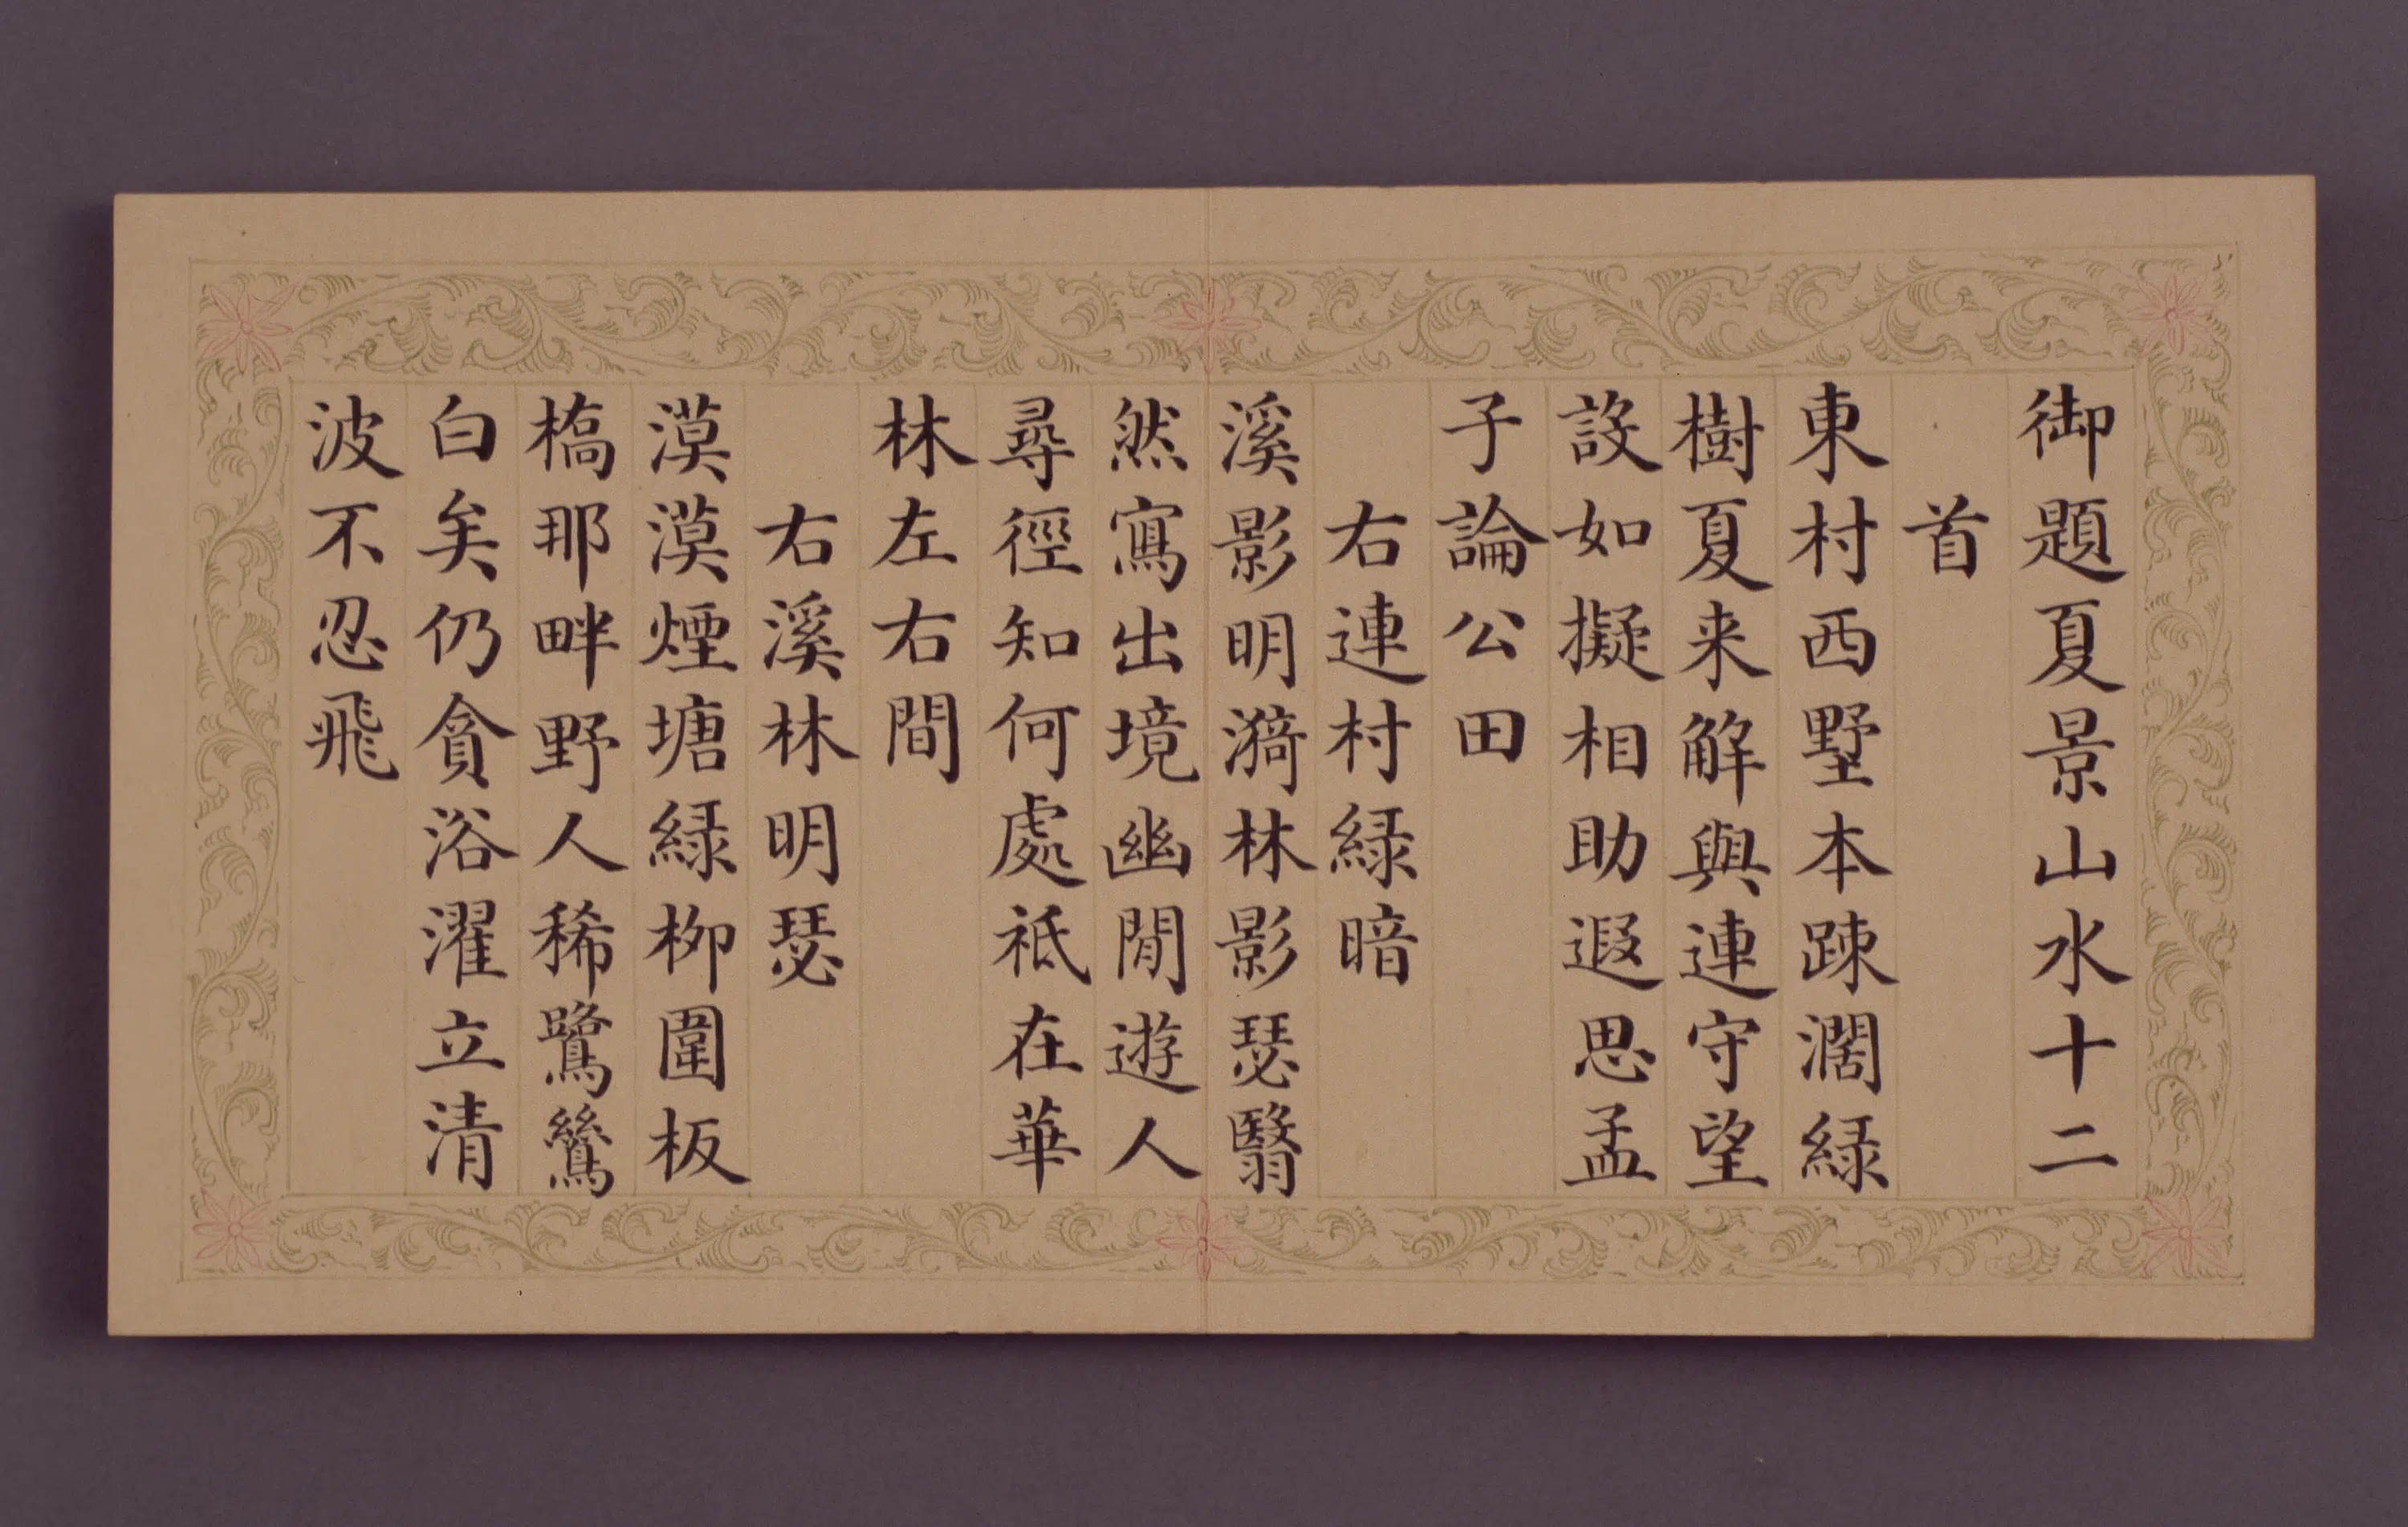 御題夏景山水十二
首
東村西墅本踈濶緑
樹夏来解與連守望
設如擬相助遐思孟
子論公田
右連村緑暗
溪影明漪林影瑟翳
然寫出境幽閒遊人
尋徑知何處祗在華
林左右間
右溪林明瑟
漠漠煙塘緑柳圍板
橋那畔野人稀鷺鷥
白矣仍貪浴濯立清
波不忍飛